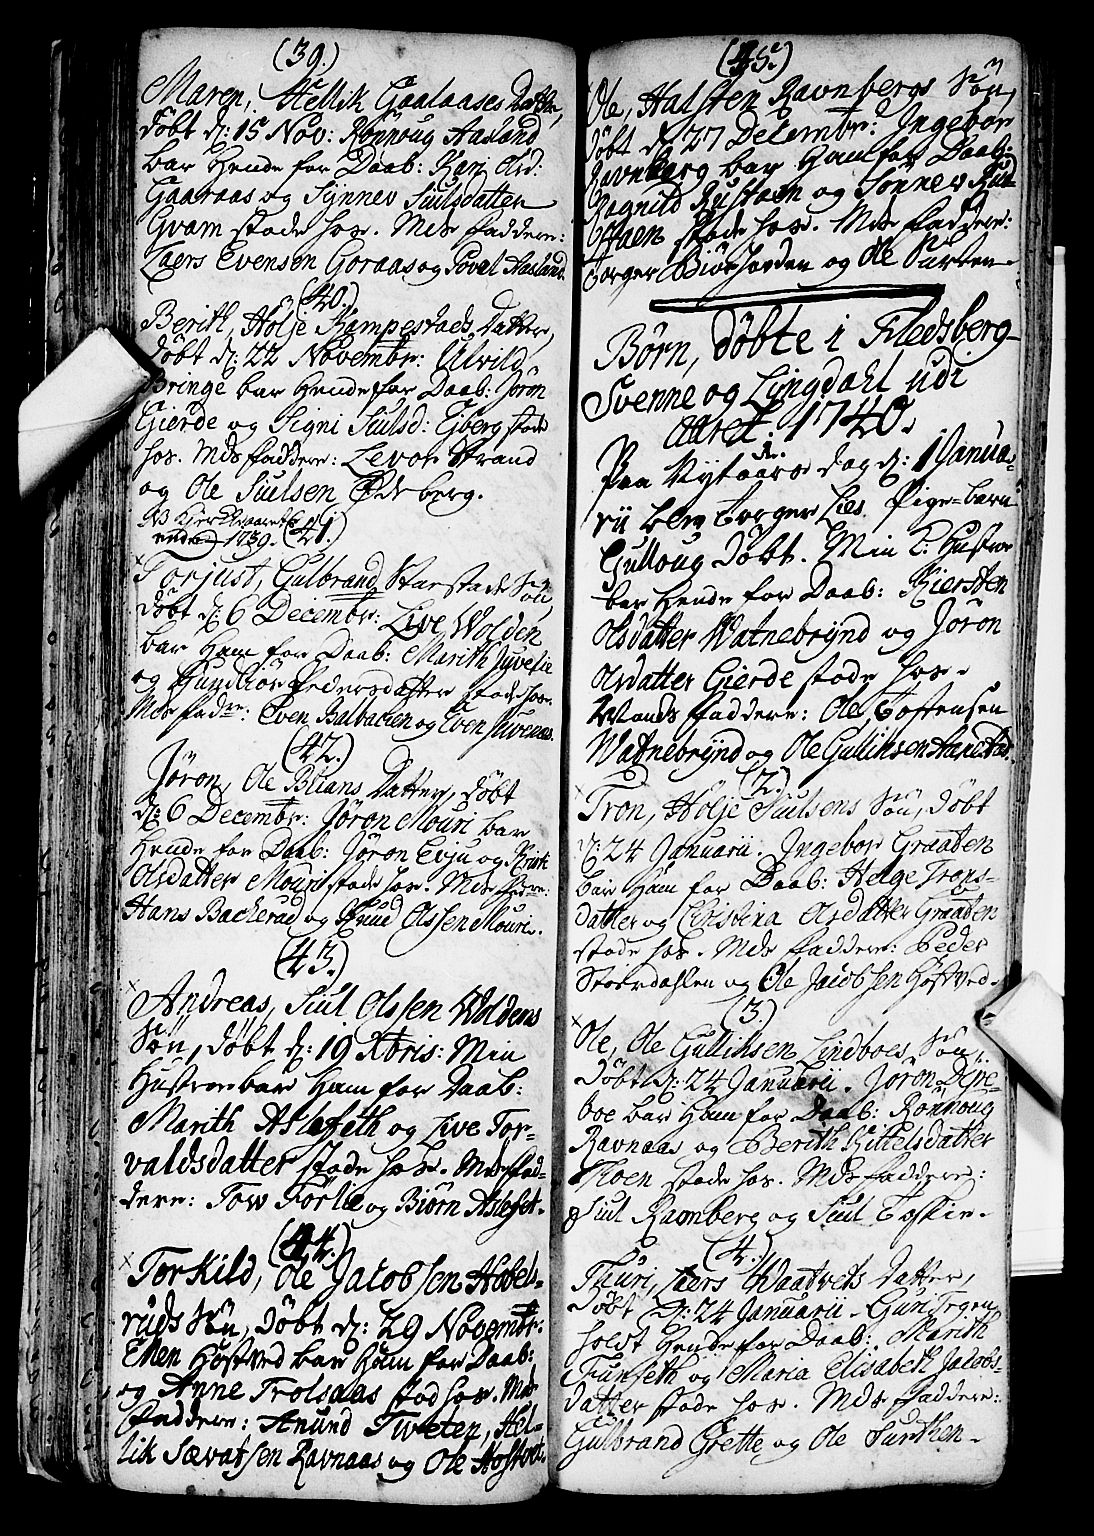 (39.)
Maren, Hellik Gaalaases Datter,
døbt d: 15 Nov: Rønnoug Aasland
bar Hende for Daab: Kari Ard:
Gaaraas og Synnev Siulsdatter
Gvam stode hos. Mds faddere:
Laers Evensen Goraas og Povel Aasland.
(40.)
Berith, Holje Kampestads Datter,
døbt d: 22 Novembr: Ulvild
Bringe bar Hende for Daab: Jøron
Gierde og Signi Siulsd: Ejberg stode
hos. Mds faddere: Levor Strand
og Ole Siulsen Ødeberg.
NB Kirke Aaret
ende 1739. (41)
Torjust, Gulbrand Starstads Søn,
døbt d: 6 Decembr: Live Wolden
bar Ham for Daab: Marith
og Gunbior Pedersdatter stode hos.
Mds fadre: Even Balbachen og Even
(42.)
Jøron, Ole Blians Datter, døbt
d: 6 Decembr: Jøron Mouri bar
Hende for Daab: Jøron Evju og Kirsti
Olsdatter Mouri stode hos. Mds fadre:
Hans Backerud og Knud Olssen Mouri.
(43.)
Andreas, Siul Olssen Woldens
Søn, døbt d: 19 Xbris: Min
Hustroe bar Ham for Daab:
Marith Aslefeth og Live Tor-
valdsdatter stode hos. Mds fad-
dere: Tow Førlie og Biørn Aslefet.
(44.)
Torkild, Ole Jacobsen Hobels-
ruds Søn, døbt d: 29 Novembr:
Ellen Hostved bar Ham for Daab:
og Anne Trolsaas stod hos. Mds
faddere: Anund Tweten, Hel-
lik Sævatsen Ravnaas og Ole Hostvet.
(45.)
Ole, Halsten Ravnbergs Søn,
døbt d: 27 Decembr: Ingebor
Ravnberg bar Ham for Daab:
Ragnild Rustaen og Sønnev Ru-
staen stode hos. Mds faddere:
Torger Biørhovden og Ole Surten.
Børn, døbte i Fledsberg
Svenne og Lingdahl udi
Aaret: 1740.
Paa Nytaars Dag d: 1 Janua-
rii blev Torger Lies Pige-barn
Gulloug døbt. Min l: Hustroe
bar Hende for Daab: Kiersten
Olsdatter Watnebrynd og Jøron
Olsdatter Gierde stode hos.
Mands faddere: Ole Toftensen
Watnebrynd og Ole Gullihsen Aarestad.
(2.)
Tron, Holje Siulsens Søn, døbt
d: 24 Januarii. Ingebor Graaten
bar Ham for Daab: Helge Trons-
datter og Christina Olsdatter Graaten
stode hos. Mds faddere: Peder
Stoerdahlen og Ole Jacobsen Hostved.
(3.)
Ole, Ole Gullihsen Lindboes Søn,
døbt d: 24 Januarii. Jøron Gre-
boe bar Ham for Daab: Rønnoug
Ravnaas og Berith Kittelsdatter
Moen stode hos. Mds faddere:
Siul Ravnberg og Siul Toskie.
(4.)
Thuri, Laers Waatvets Datter,
døbt d: 24 Januarii. Gun Tregen
holdt Hende for Daab: Marith
Funseth og Maria Elisabeth Jacobs-
datter stode hos. Mds faddere:
Gulbrand Grette og Ole Surthen.